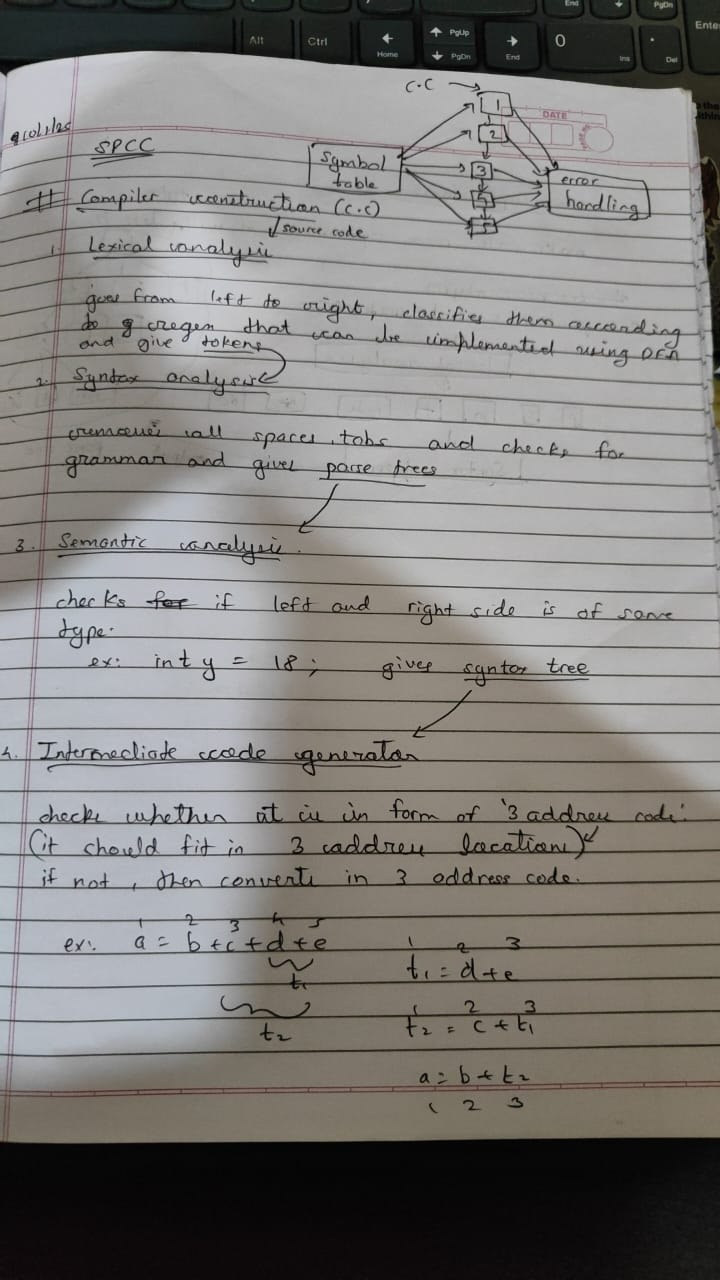 End
PgDn
Alt
Ctrl
Home
PgUp
PgDn
End
0
Ins
.
Del
Enter
C.C
DATE
10/1/25
SPCC
Symbol
table
1
2
3
4
5
error
handling
# Compiler construction (C.C)
source code
1. Lexical analysis
goes from left to right, classifies them according
to regex that can be implemented using DFA
and give tokens
2. Syntax analysis
removes all spaces, tabs and checks for
grammar and gives parse trees
3. Semantic analysis.
checks for if left and right side is of same
type.
ex: int y = 18; gives syntax tree
4. Intermediate code generator
checks whether it is in form of '3 address code'
(it should fit in 3 address locations)
if not, then converts in 3 address code.
1 2 3 4 5
ex: a = b + c + d + e
t1
t2
1 2 3
t1 = d + e
1 2 3
t2 = c + t1
a = b + t2
1 2 3